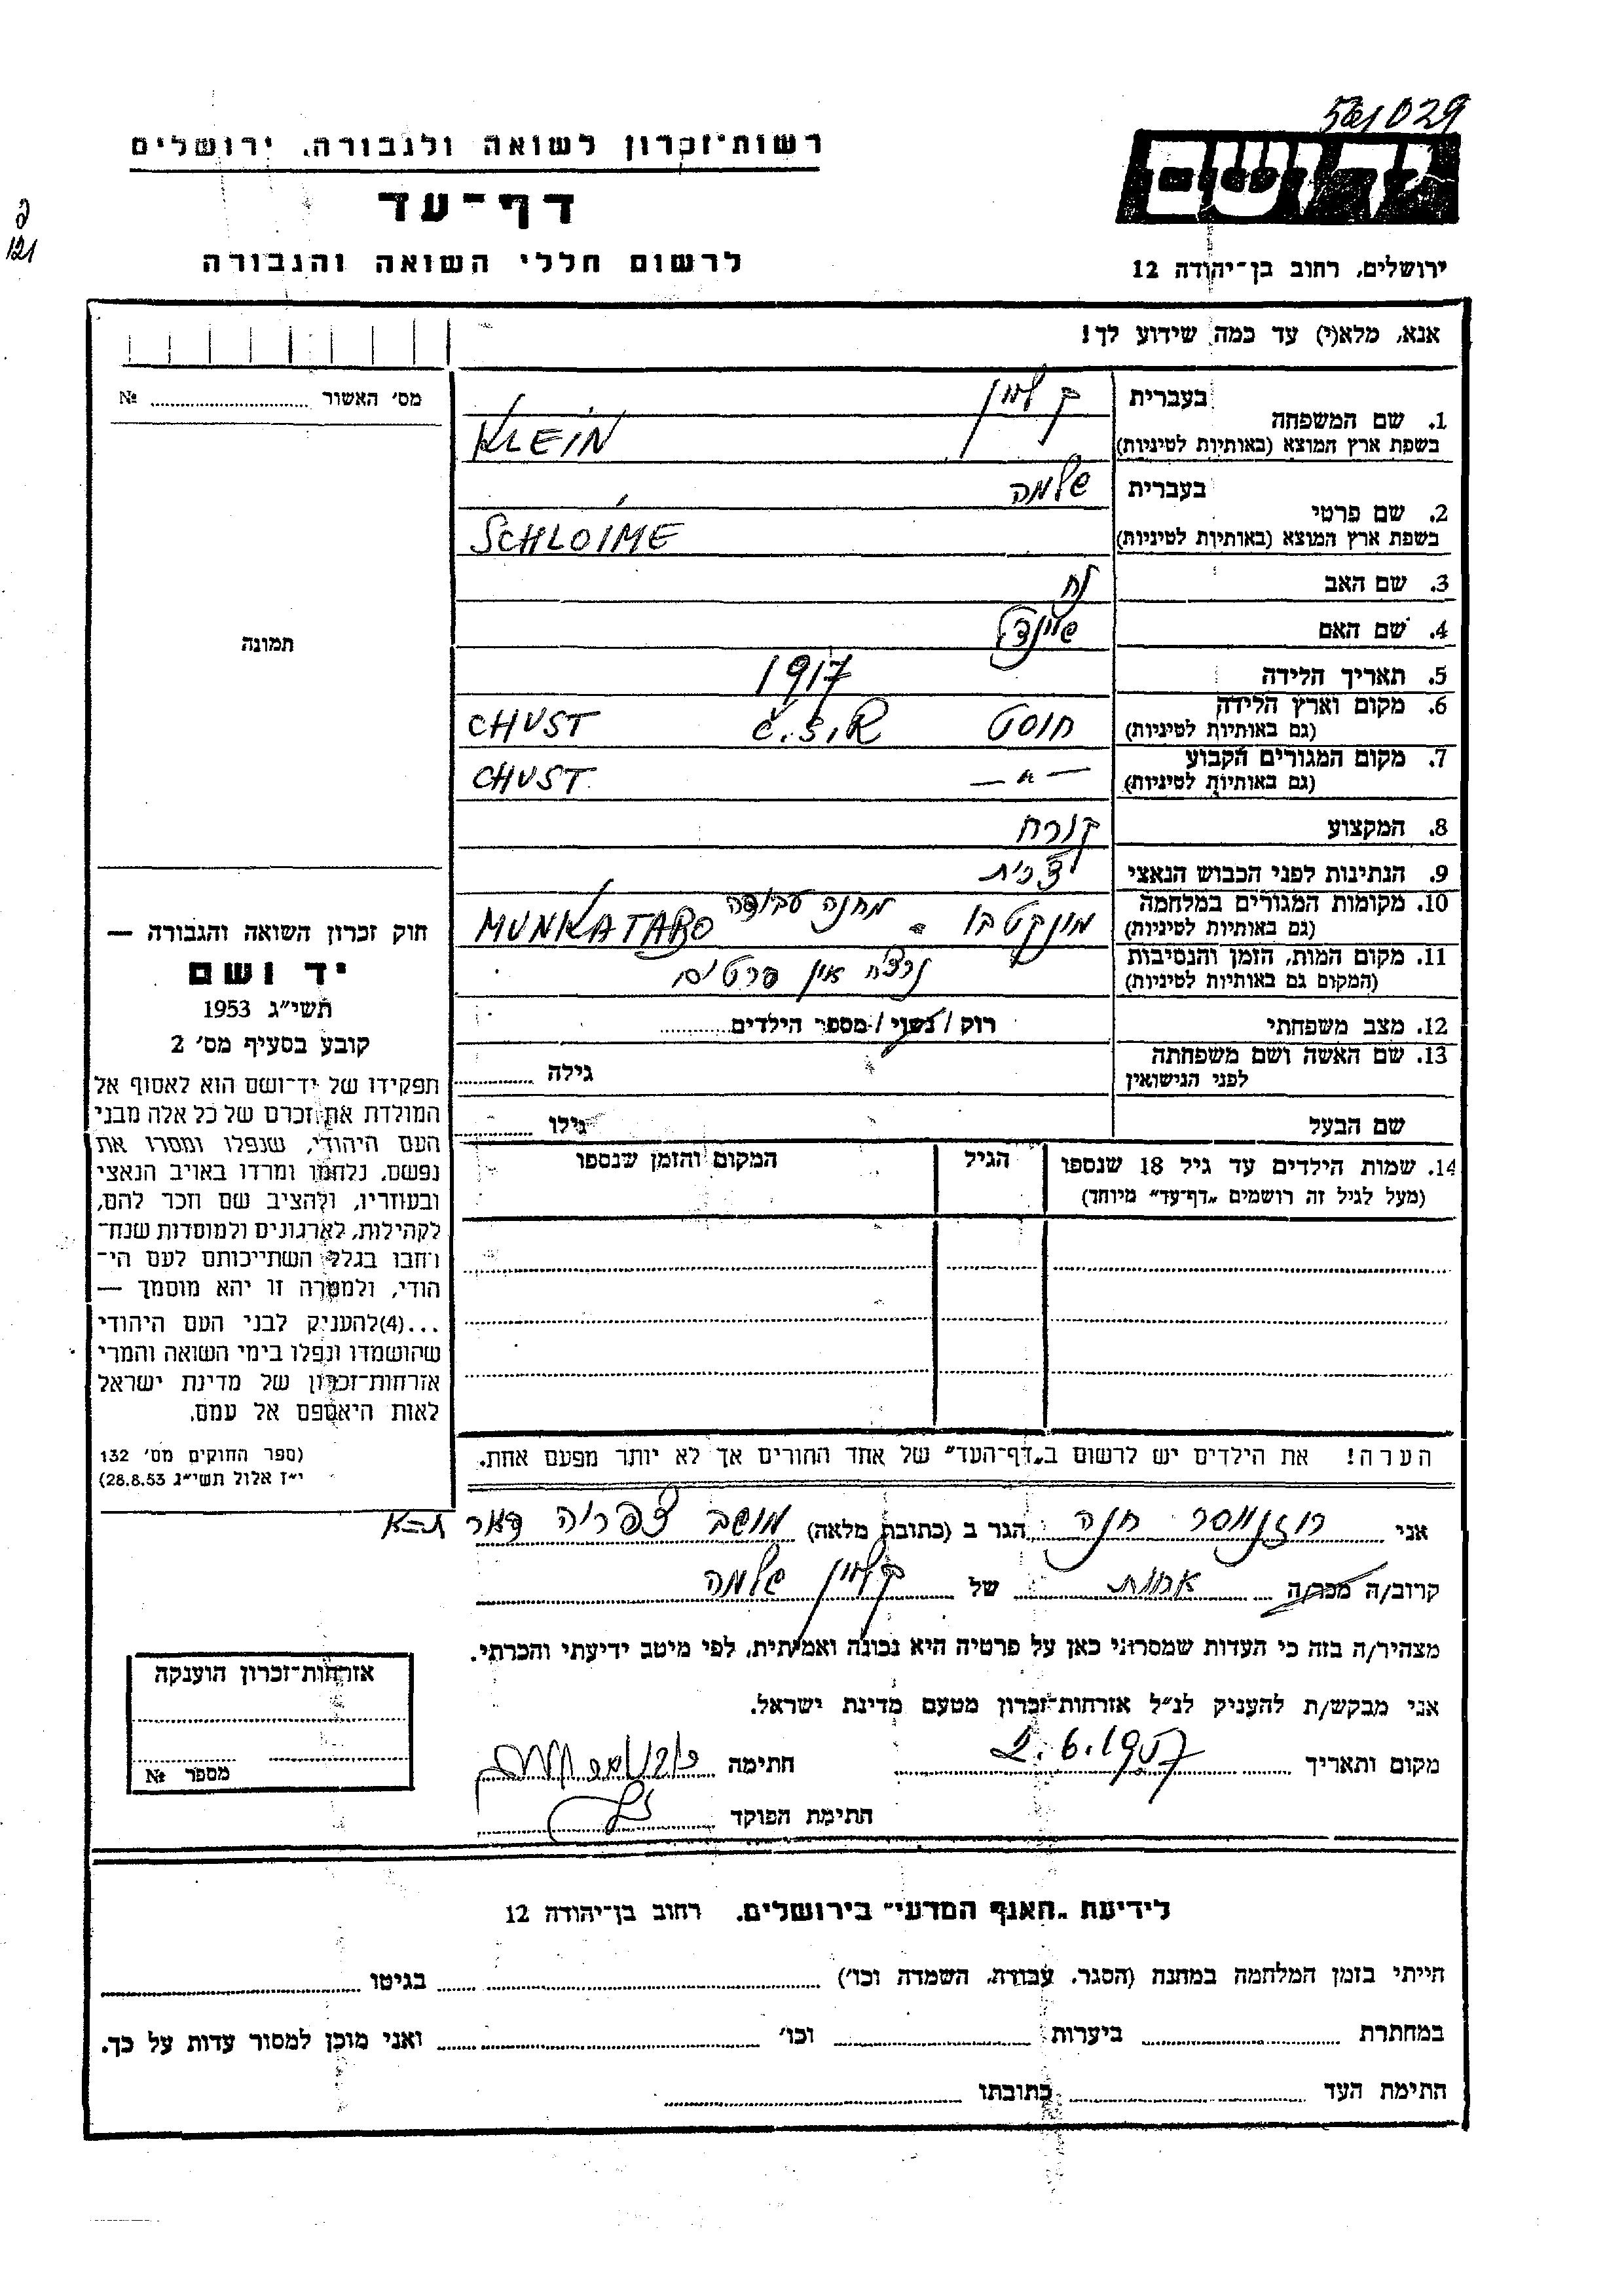 561029
רשות־זכרון לשואה ולגבורה, ירושלים
יד ושם
דף־עד
לרשום חללי השואה והגבורה
ירושלים, רחוב בן־יהודה 12
121
אנא, מלא(י) עד כמה שידוע לך!
מס' האשור № ........
תמונה
1. שם המשפחה בעברית קליין
בשפת ארץ המוצא (באותיות לטיניות) KLEIN
2. שם פרטי בעברית שלמה
בשפת ארץ המוצא (באותיות לטיניות) SCHLOIME
3. שם האב נח
4. שם האם שיינדל
5. תאריך הלידה 1917
6. מקום וארץ הלידה חוסט Č.S.R CHUST
(גם באותיות לטיניות)
7. מקום המגורים הקבוע — " — CHUST
(גם באותיות לטיניות)
8. המקצוע
9. הנתינות לפני הכבוש הנאצי
10. מקומות המגורים במלחמה מונקטבו - מחנה עבודה MUNKATABO
(גם באותיות לטיניות)
11. מקום המות, הזמן והנסיבות נרצח אין פרטים
(המקום גם באותיות לטיניות)
12. מצב משפחתי רוק / נשוי / מספר הילדים........
13. שם האשה ושם משפחתה גילה ........
לפני הנישואין
שם הבעל גילו ........
14. שמות הילדים עד גיל 18 שנספו הגיל המקום והזמן שנספו
(מעל לגיל זה רושמים „דף־עד" מיוחד)
הערה! את הילדים יש לרשום ב„דף־העד" של אחד ההורים אך לא יותר מפעם אחת.
חוק זכרון השואה והגבורה —
יד ושם
תשי"ג 1953
קובע בסעיף מס' 2
תפקידו של יד־ושם הוא לאסוף אל
המולדת את זכרם של כל אלה מבני
העם היהודי, שנפלו ומסרו את
נפשם, נלחמו ומרדו באויב הנאצי
ובעוזריו, ולהציב שם וזכר להם,
לקהילות, לארגונים ולמוסדות שנח־
רחבו בגלל השתייכותם לעם הי־
הודי, ולמטרה זו יהא מוסמך —
...(4)להעניק לבני העם היהודי
שהושמדו ונפלו בימי השואה והמרי
אזרחות־זכרון של מדינת ישראל
לאות היאספם אל עמם.
(ספר החוקים מס' 132
י"ז אלול תשי"ג 28.8.53)
אני רוזנווסר חנה הגר ב (כתובת מלאה) מושב צפריה דאר ת-א
קרוב/ה מכר/ה אחות של קליין שלמה
מצהיר/ה בזה כי העדות שמסרתי כאן על פרטיה היא נכונה ואמיתית, לפי מיטב ידיעתי והכרתי.
אני מבקש/ת להעניק לנ"ל אזרחות־זכרון מטעם מדינת ישראל.
מקום ותאריך 2.6.1957 חתימה
חתימת הפוקד
אזרחות־זכרון הוענקה
מספר №
לידיעת „האגף המדעי" בירושלים, רחוב בן־יהודה 12
הייתי בזמן המלחמה במחנה (הסגר, עבודה, השמדה וכו') ........ בגיטו ........
במחתרת ........ ביערות ........ וכו' ........ ואני מוכן למסור עדות על כך.
חתימת העד ........ כתובתו ........